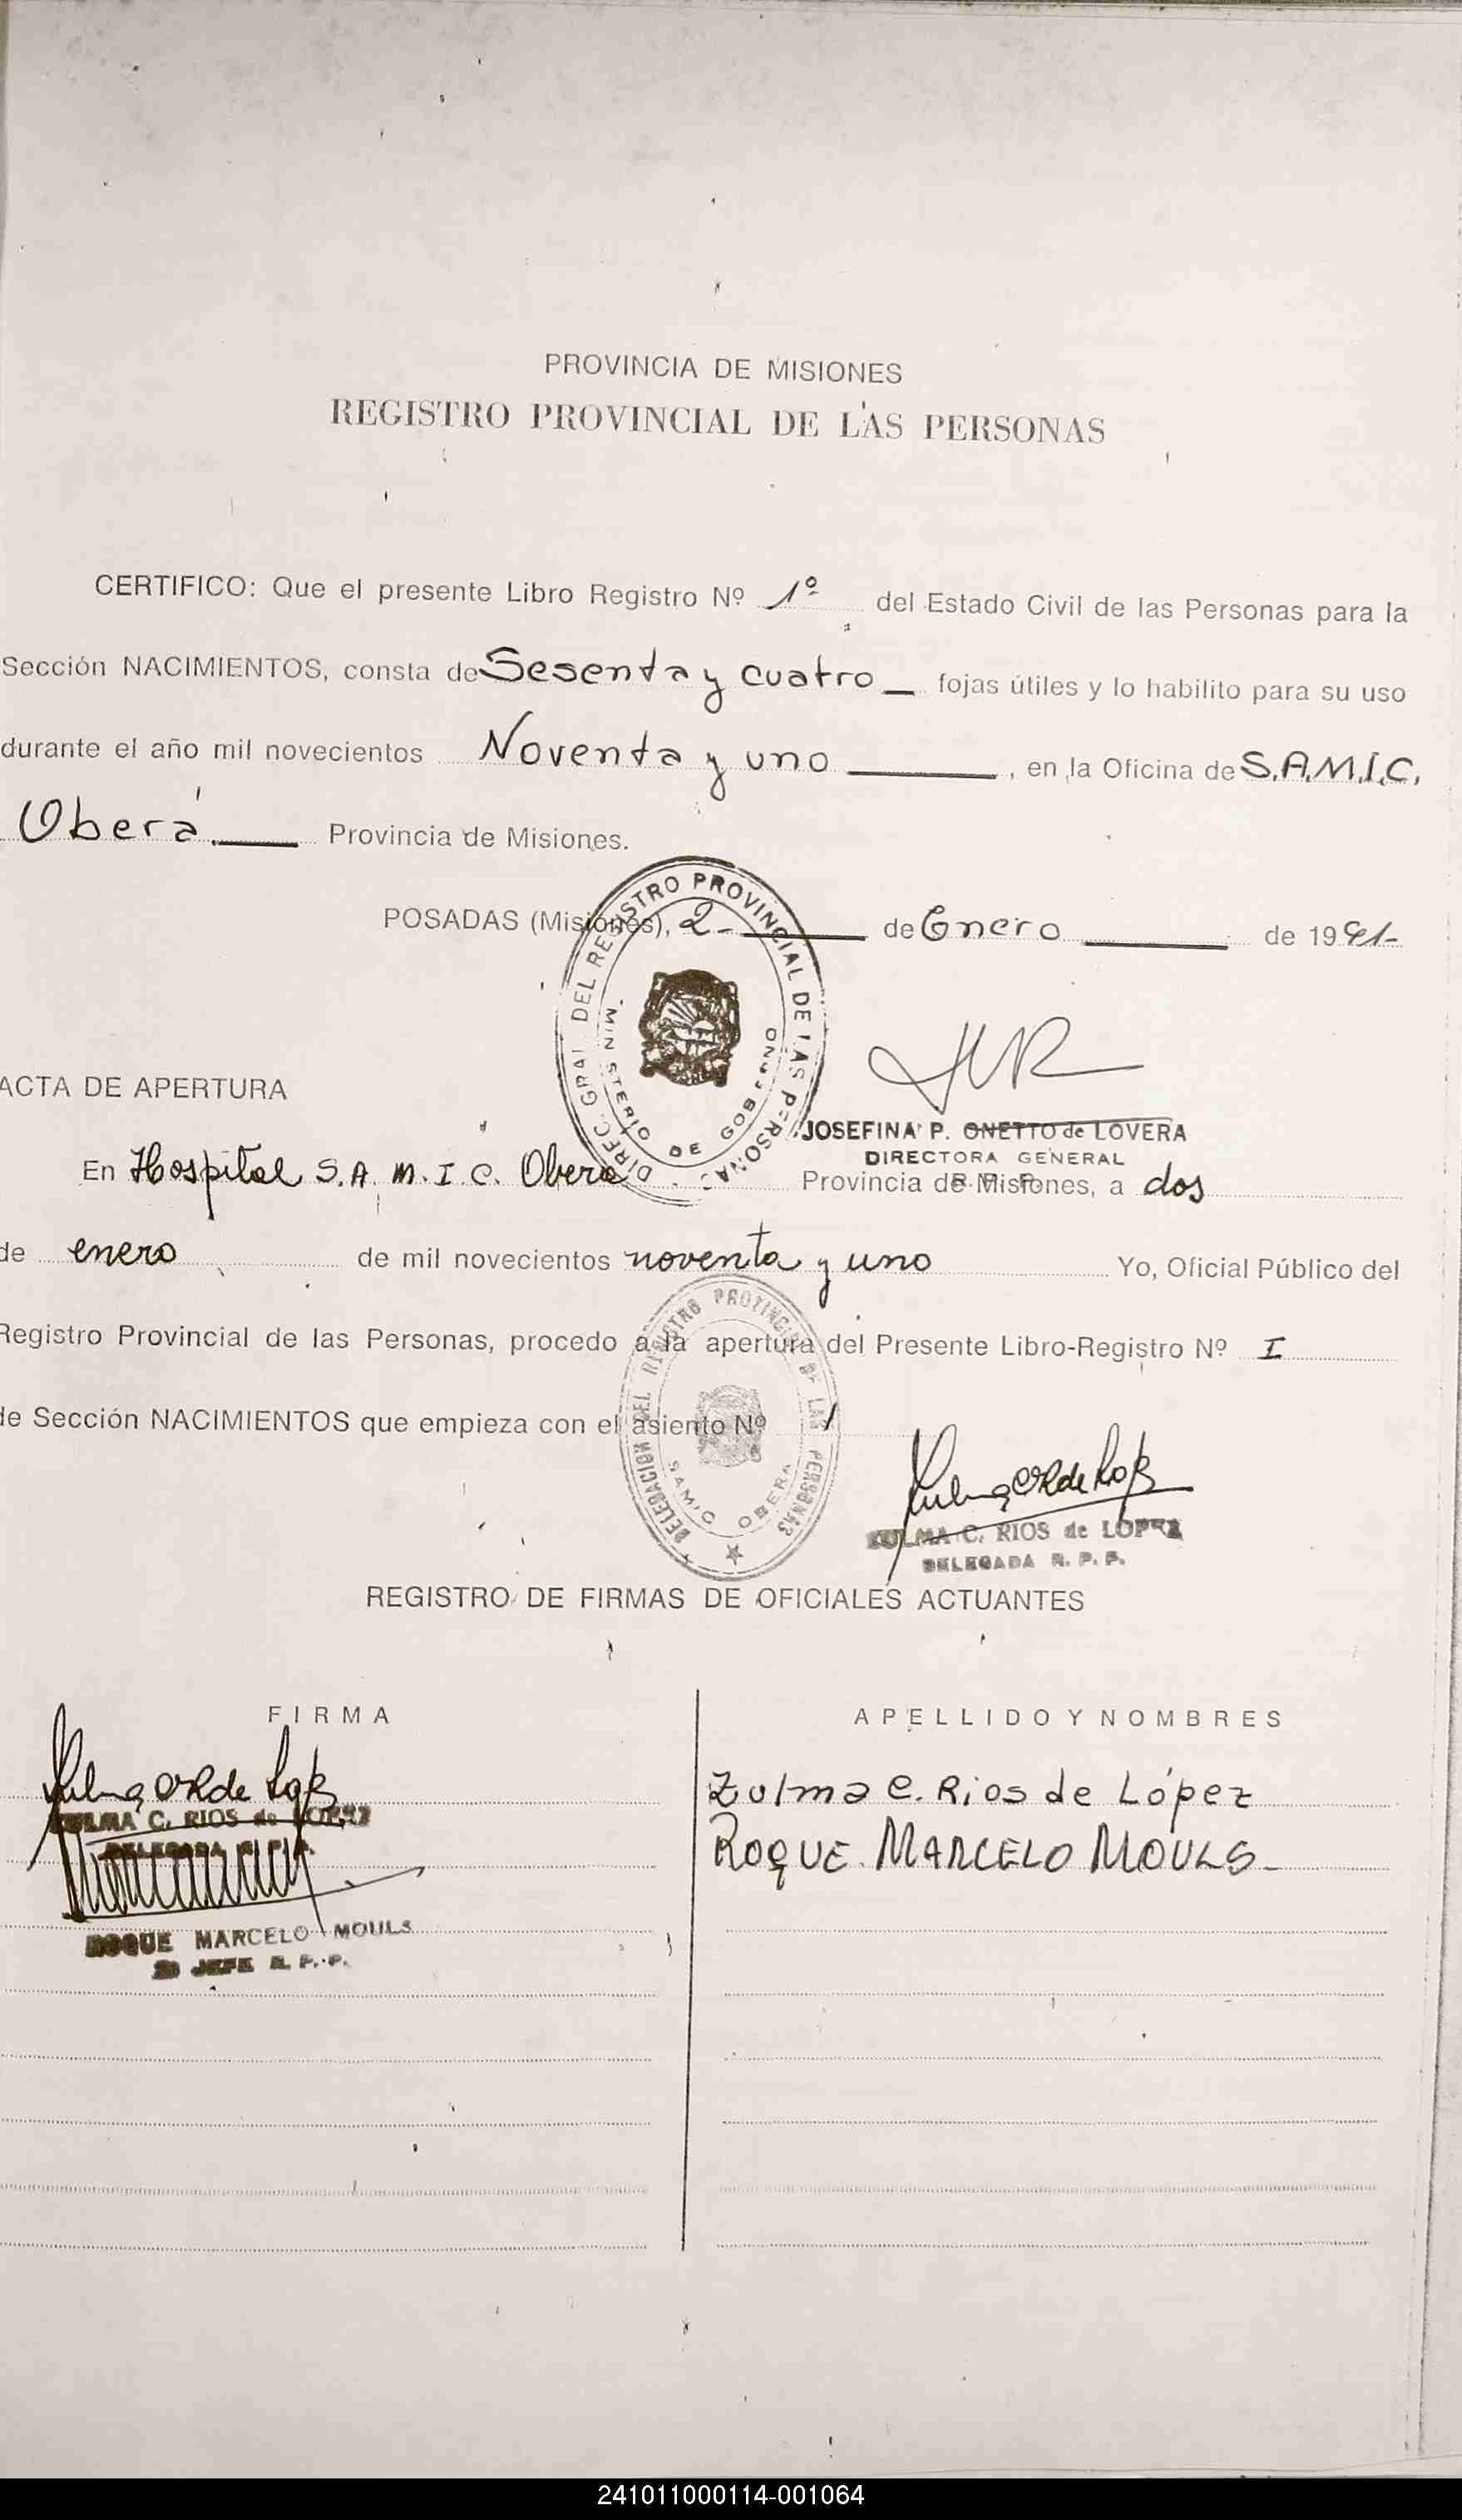 PROVINCIA DE MISIONES
REGISTRO PROVINCIAL DE LAS PERSONAS
CERTIFICO: Que el presente Libro Registro Nº 1º del Estado Civil de las Personas para la
Sección NACIMIENTOS, consta de Sesenta y cuatro fojas útiles y lo habilito para su uso
durante el año mil novecientos Noventa y uno, en la Oficina de S.A.M.I.C.
Oberá Provincia de Misiones.
POSADAS (Misiones), 2- de Enero de 1991-
DIREC. GRAL. DEL REGISTRO PROVINCIAL DE LAS PERSONAS
MINISTERIO DE GOBIERNO
JOSEFINA P. ONETTO de LOVERA
DIRECTORA GENERAL
R. P. P.
ACTA DE APERTURA
En Hospital S.A.M.I.C. Oberá Provincia de Misiones, a dos
de enero de mil novecientos noventa y uno Yo, Oficial Público del
Registro Provincial de las Personas, procedo a la apertura del Presente Libro-Registro Nº I
de Sección NACIMIENTOS que empieza con el asiento Nº 1
DELEGACION DEL REGISTRO PROVINCIAL DE LAS PERSONAS
SAMIC OBERA
ZULMA C. RIOS de LOPEZ
DELEGADA R. P. P.
REGISTRO DE FIRMAS DE OFICIALES ACTUANTES
FIRMA
APELLIDO Y NOMBRES
Zulma C. Rios de López
ZULMA C. RIOS de LOPEZ
DELEGADA R. P. P.
ROQUE MARCELO MOULS-
ROQUE MARCELO MOULS
JEFE R. P. P.
241011000114-001064